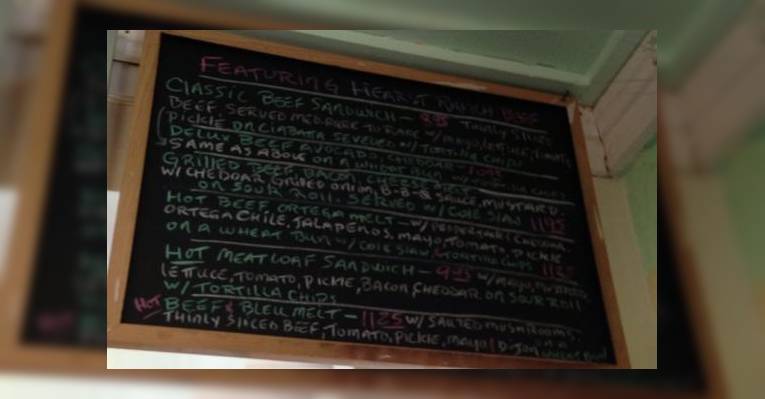 FEATURING HEART RANCH BEEF
CLASSIC BEEF SANDWICH - THINLY SLICED
BEEF SERVED MED. RARE TO RARE W/ MAYO, LETTUCE, TOMATO
PICKLE ON CIABATA SERVED W/ TORTILLA CHIPS
DELUX BEEF AVOCADO, CHEDDAR
SAME AS ABOVE ON A WHEAT BUN
GRILLED BEEF, BACON, CHEESE
W/ CHEDDAR, GRILLED ONION, B-B-Q SAUCE, MUSTARD,
ON SOUR ROLL. SERVED W/ COLE SLAW
HOT BEEF ORTEGA MELT - W/ PEPPERJACK CHEDDAR 1195
ORTEGA CHILE, JALAPEÑOS, MAYO, TOMATO, PICKLE
ON A WHEAT BUN W/ COLE SLAW & TORTILLA CHIPS
HOT MEATLOAF SANDWICH - 925 W/ MAYO, MUSTARD,
LETTUCE, TOMATO, PICKLE, BACON & CHEDDAR ON SOUR ROLL
W/ TORTILLA CHIPS
HOT BEEF & BLEU MELT - 1125 W/ SAUTED MUSHROOMS,
THINLY SLICED BEEF, TOMATO, PICKLE, MAYO, D-JON ON A WHEAT BUN